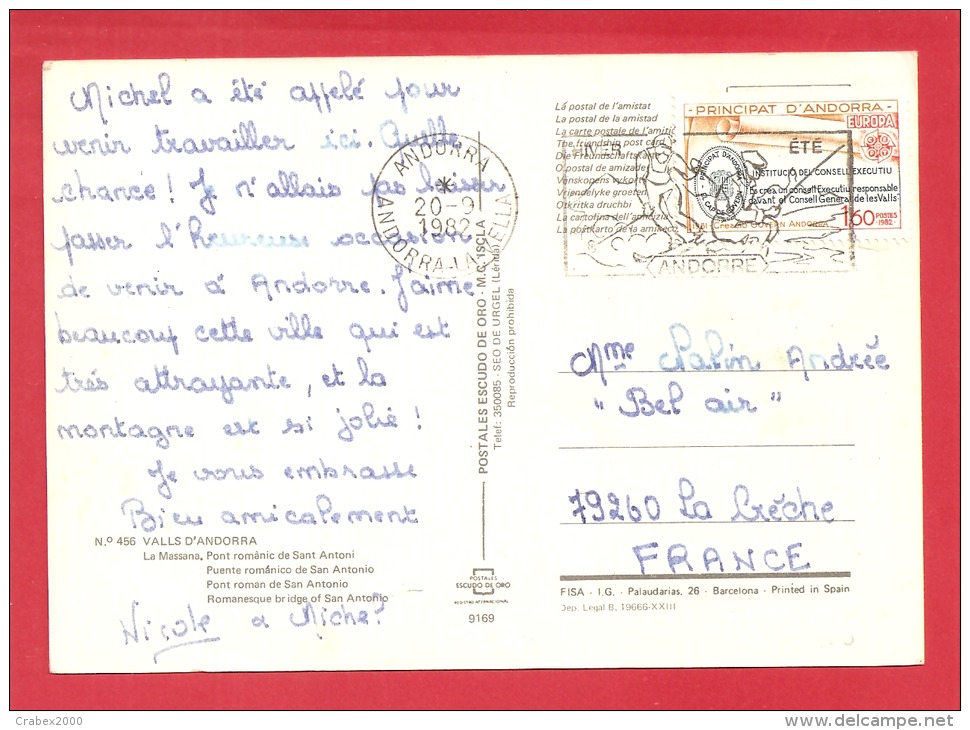 Michel a été appelé pour
venir travailler ici. Quelle
chance! Je n'allais pas laisser
passer l'heureuse occasion
de venir à Andorre. J'aime
beaucoup cette ville qui est
trés attrayante, et la
montagne est si jolie!
Je vous embrasse
Bien amicalement
N.º 456 VALLS D'ANDORRA
La Massana, Pont romànic de Sant Antoni
Puente románico de San Antonio
Pont roman de San Antonio
Romanesque bridge of San Antonio
Nicole
Michel
POSTALES
ESCUDO DE ORO
9169
POSTALES ESCUDO DE ORO - M.C. ISCLA
Telef: 350085 - SEO DE URGEL (Lérida)
Reproducción prohibida
ANDORRA
20-9
1982
ANDORRA-LA-VELLA
La postal de l'amistat
La postal de la amistad
La carte postale de l'amitié
The friendship post card
Die Freundschaftskarte
O postal de amizade
Vriendelyke groeten
Otkritka druchbi
La cartolina dell'amicizia
PRINCIPAT D'ANDORRA
EUROPA
ÉTÉ
INSTITUCIÓ DEL CONSELL EXECUTIU
Es crea un consell Executiu responsable
davant el Consell General de les Valls
1,60 POSTES
1982
ANDORRE
Mme Andrée
"Bel air"
79260 La Crèche
FRANCE
FISA - I.G. - Palaudarias, 26 - Barcelona - Printed in Spain
Dep. Legal B. 19666-XXIII
Crabex2000
www.delcampe.net